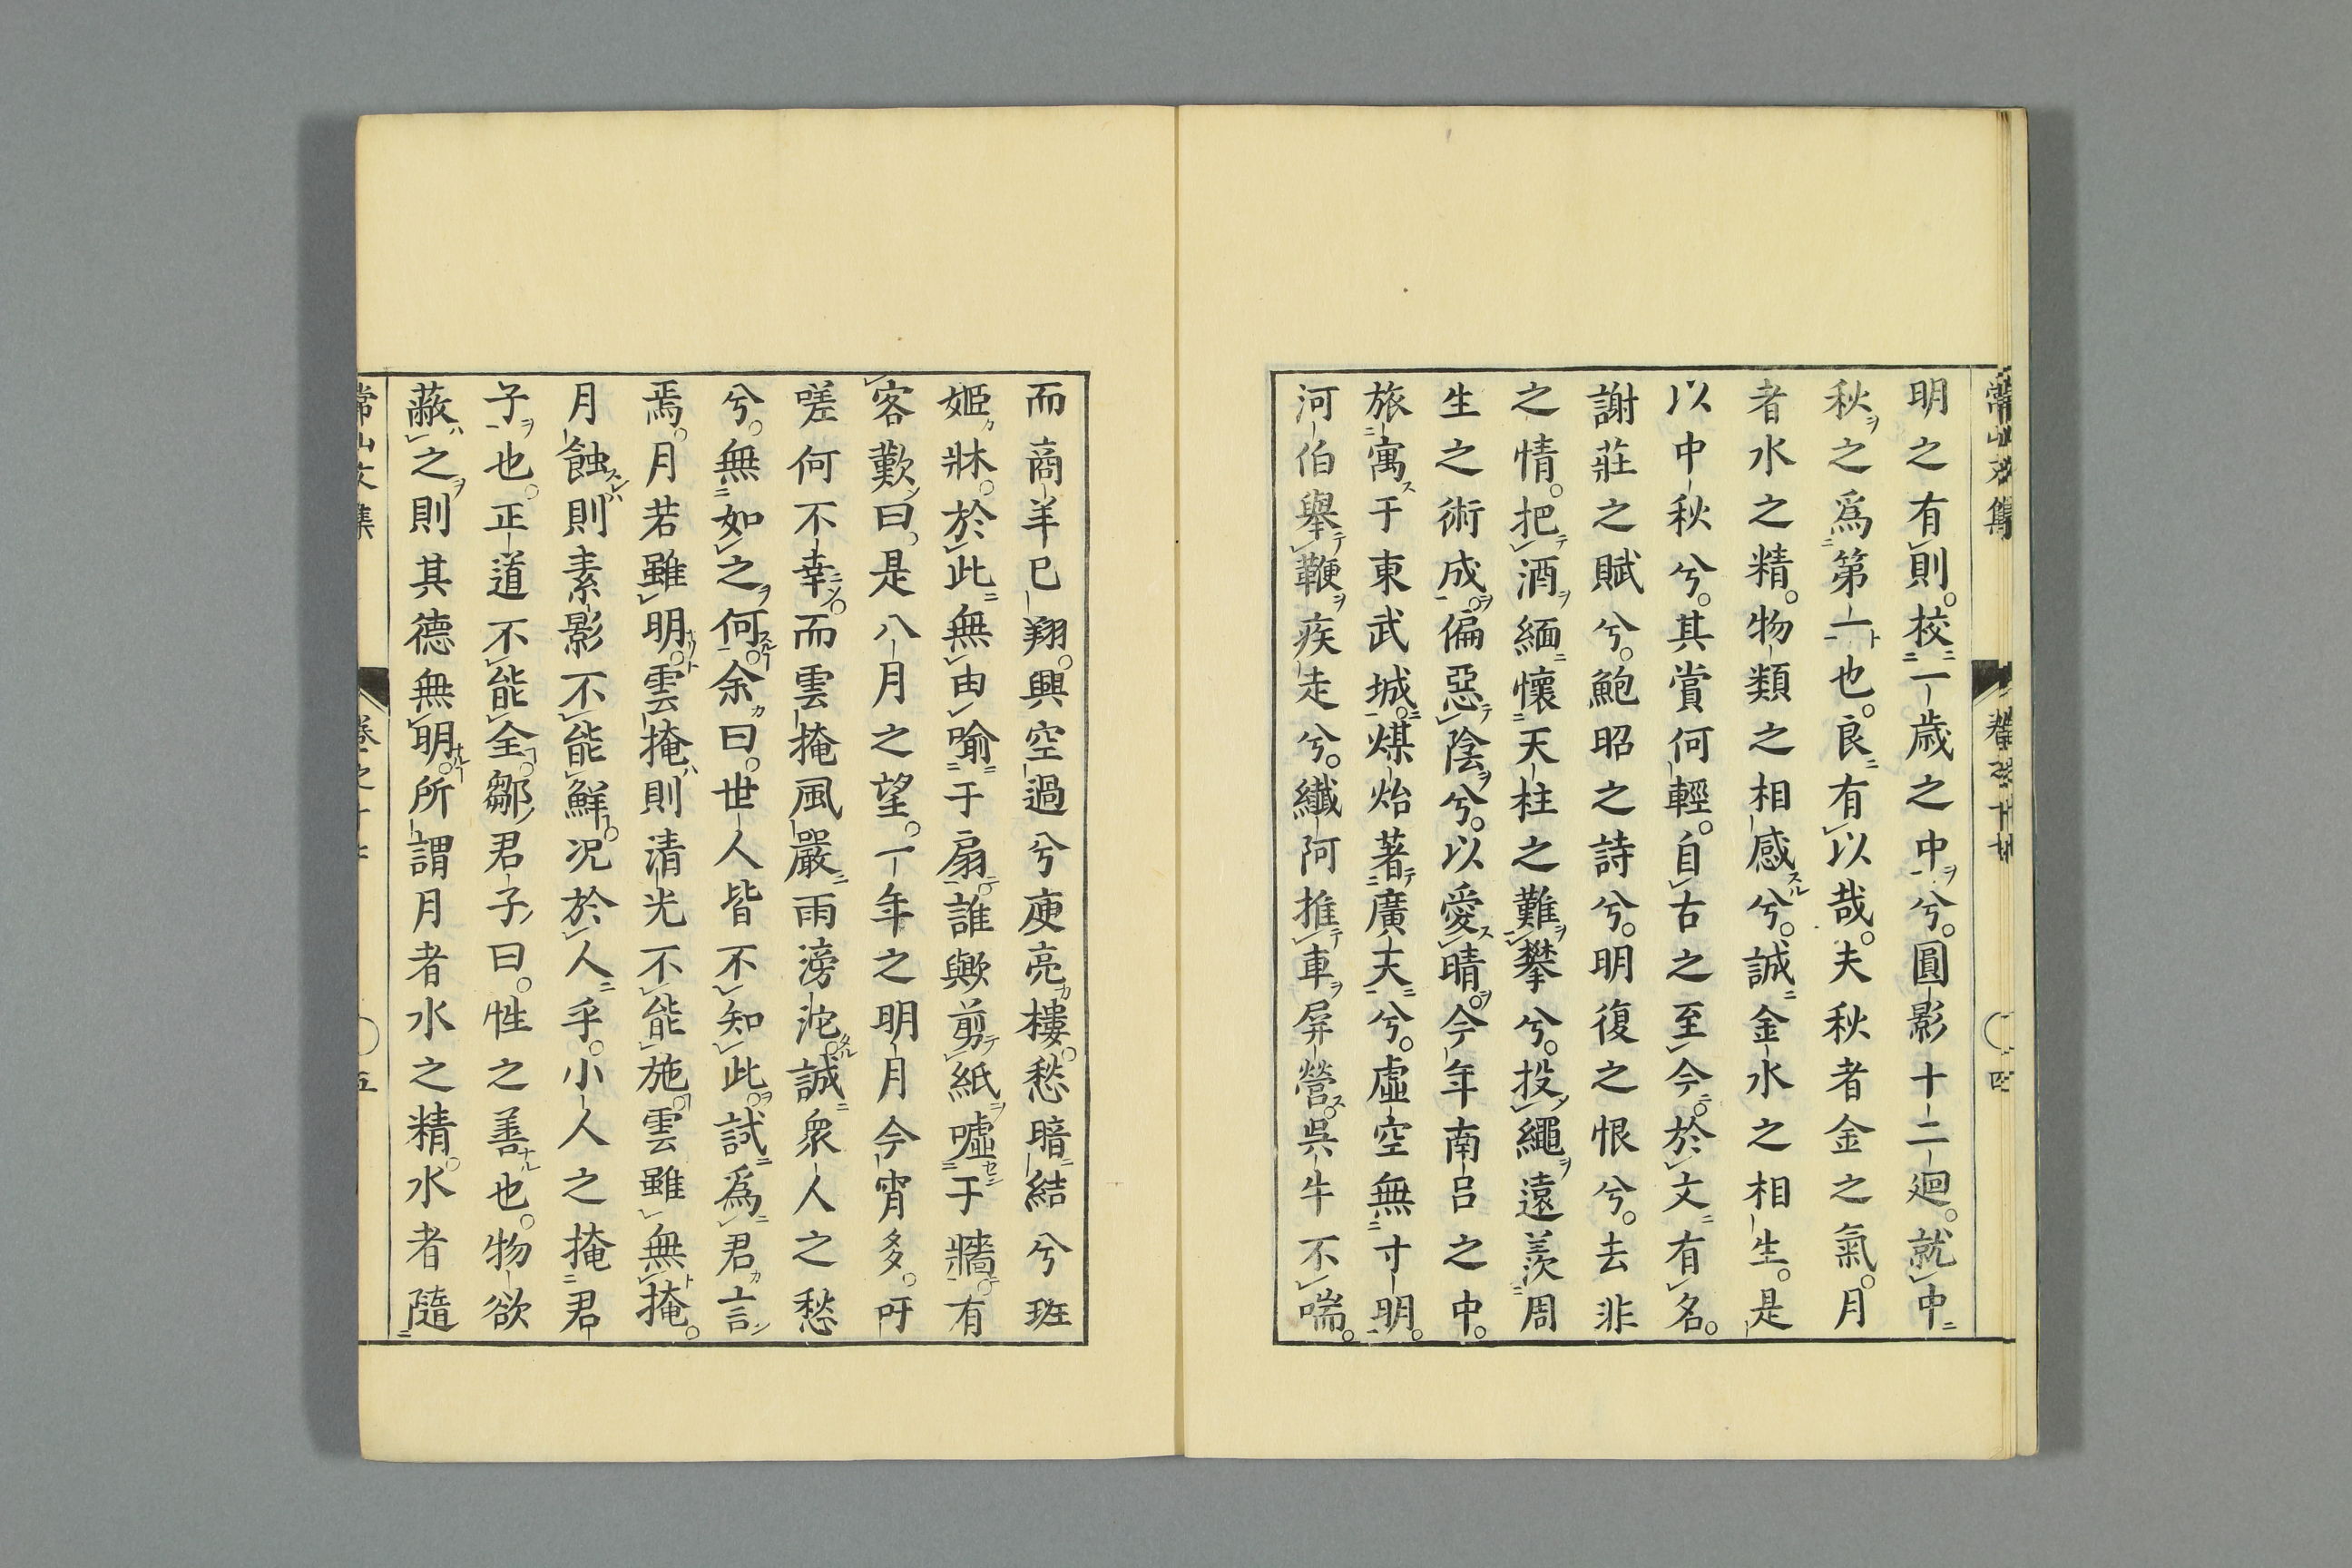 明之有則。校一歳之中兮。圓影十二廻。就中
秋之爲第一也。良有以哉。夫秋者金之氣。月
者水之精。物類之相感兮。誠金水之相生。是
以中秋兮。其賞何輕。自古之至今。於文有名。
謝莊之賦兮。鮑昭之詩兮。明復之恨兮。去非
之情。把酒緬懷天柱之難攀兮。投繩遠羨周
生之術成。偏惡陰兮。以愛晴。今年南呂之中。
旅寓于東武城。煤炲著廣天兮。虛空無寸明。
河伯擧鞭疾走兮。纖阿推車屏營。吳牛不喘。
而商羊已翔。興空過兮庾亮樓。愁暗結兮班
姬牀。於此無由喻于扇。誰歟剪紙噓于牆。有
客歎曰。是八月之望。一年之明月今宵多。吁
嗟何不幸。而雲掩風嚴雨滂沱。誠衆人之愁
兮。無如之何。余曰。世人皆不知此。試爲君言
焉。月若雖明。雲掩則清光不能施。雲雖無掩。
月蝕則素影不能鮮。况於人乎。小人之掩君
子也。正道不能全。鄒君子曰。性之善也。物欲
蔽之則其德無明。所謂月者水之精。水者隨
常山文集
卷之十七
五